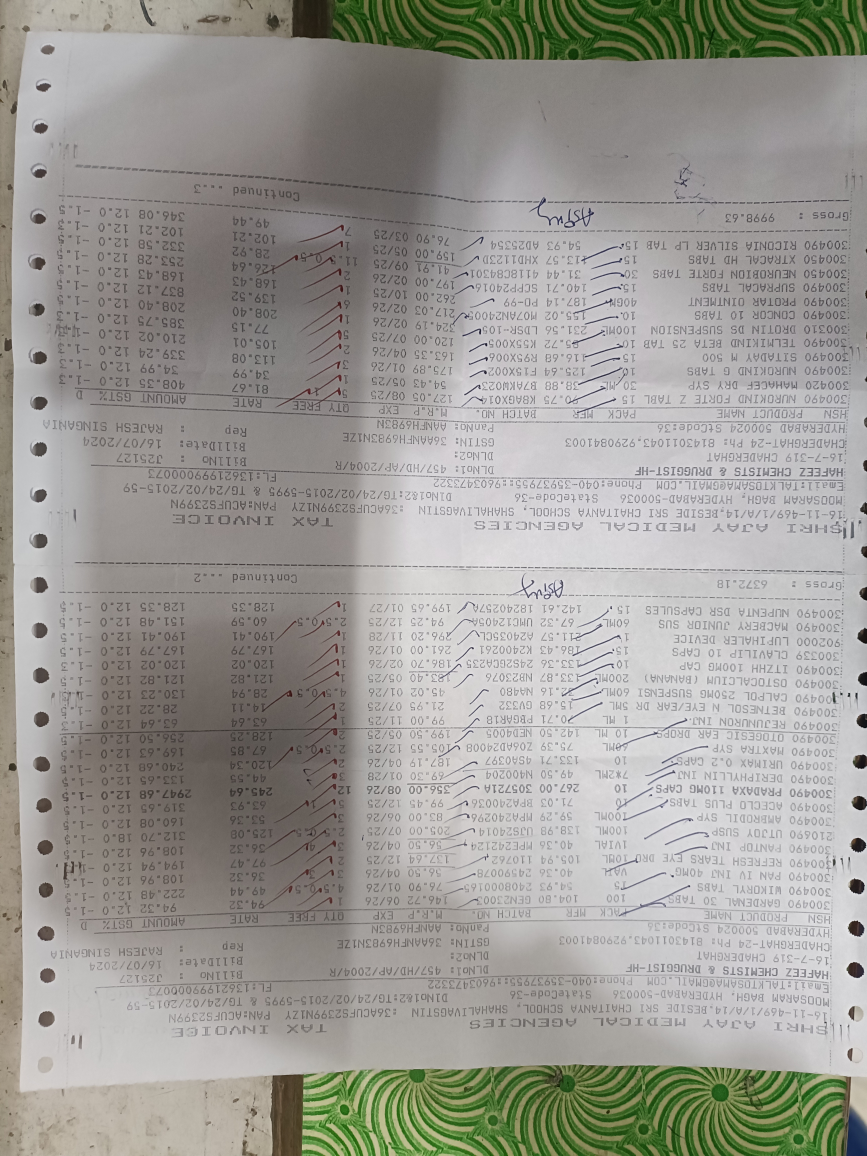 SHRI AJAY MEDICAL AGENCIES TAX INVOICE
16-11-469/1/A/14,BESIDE SRI CHAITANYA SCHOOL, SHAHALIVAGSTIN :36ACUFS2399N1ZY PAN:ACUFS2399N
MOOSARAM BAGH, HYDERABAD-500036 StateCode-36 DlNO1&2:TG/24/02/2015-5995 & TG/24/02/2015-59
Email:ITALKTOSAHA@GMAIL.COM Phone:040-35937955::9603473322 FL:13621999000073
HAFEEZ CHEMISTS & DRUGGIST-HF DLNo1: 457/HD/AP/2004/R BillNo : J25127
16-7-319 CHADERGHAT DLNo2: BillDate: 16/07/2024
CHADERGHAT-24 Ph: 8143011043,929084 1003 GSTIN: 36AANFH6983N1ZE Rep : RAJESH SINGANIA
HYDERABAD 500024 Stcode:36 PanNo: AANFH6983N
HSN PRODUCT NAME PACK MFR BATCH NO. M.R.P EXP QTY FREE RATE AMOUNT GST% D
300490 GARDENAL 30 TABS 100 104.80 GEN23003 146.72 06/26 1 94.32 94.32 12.0 -1.5
300490 MIKORYL TABS 15 54.93 76.90 01/26 4.5 0.5 49.44 222.48 12.0 -1.5
300490 PAN IV INJ 40MG VAIL 40.36 24590078 56.50 04/26 3 36.32 108.96 12.0 -1.5
300490 REFRESH TEARS EYE DRO 10ML 105.94 110762 137.64 12/25 2 97.47 194.94 12.0 -1.5
300490 PANTOP INJ 1VIAL 40.36 56.50 04/26 36.32 108.96 12.0 -1.5
210690 UTJOY SUSP 100ML 138.98 UJS24014 205.00 07/25 2.5 0.5 125.08 312.70 18.0 -1.5
300490 AMBRODIL SYP 100ML 59.29 MPA24029 83.00 06/26 3 53.36 160.08 12.0 -1.5
300490 ACECLO PLUS TABS 10 71.03 BPA24003 99.45 12/25 5 63.93 319.65 12.0 -1.5
300490 PRADAXA 110MG CAPS 10 267.00 305721A 356.00 08/26 12 245.64 2947.68 12.0 -1.5
300490 DERIPHYLLIN INJ 7X2ML 49.50 N400204 69.30 01/28 3 44.55 133.65 12.0 -1.5
300490 URIMAX 0.2 CAPS 10 133.71 4SA0397 187.19 04/26 2 120.34 240.68 12.0 -1.5
300490 MAXTRA SYP 60ML 75.39 Z06AD24008 105.55 12/25 2.5 0.5 67.85 169.63 12.0 -1.5
300490 OTOGESIC EAR DROPS 10 ML 142.50 NED4005 199.50 05/25 2 128.25 256.50 12.0 -1.5
300490 REJUNURON INJ 1 ML 70.71 PBGAR18 99.00 11/25 1 63.64 63.64 12.0 -1.3
300490 BETNESOL N EYE/EAR DR 5ML 15.68 GV332 21.95 07/25 2 14.11 28.22 12.0 -1.5
300490 CALPOL 250MG SUSPENSI 60ML 32.16 NA480 45.02 01/26 4.5 0.5 28.94 130.23 12.0
300490 OSTOCALCIUM (BANANA) 200ML 133.87 NB23076 05/25 1 121.82 121.82 12.0 -1.5
300490 ITZHH 100MG CAP 10 133.36 24GSCGA235 186.70 02/26 1 120.02 120.02 12.0 -1.3
339230 CLAVILIP 10 CAPS 15 186.43 K240261 261.00 01/26 1 167.79 167.79 12.0 -1.5
902000 LUPIHALER DEVICE 1 211.57 A24035CL 296.20 11/28 1 190.41 190.41 12.0 -1.5
300490 MACBERY JUNIOR SUS 60ML 67.32 UMC1M2405A 94.25 12/25 2.5 0.5 60.59 151.48 12.0 -1.5
300490 NUPENTA DSR CAPSULES 15 142.61 18240257A 199.65 01/27 1 128.35 128.35 12.0 -1.5
Gross : 6372.18 Continued ...2
SHRI AJAY MEDICAL AGENCIES TAX INVOICE
16-11-469/1/A/14,BESIDE SRI CHAITANYA SCHOOL, SHAHALIVAGSTIN :36ACUFS2399N1ZY PAN:ACUFS2399N
MOOSARAM BAGH, HYDERABAD-500036 StateCode-36 DlNO1&2:TG/24/02/2015-5995 & TG/24/02/2015-59
Email:ITALKTOSAHA@GMAIL.COM Phone:040-35937955::9603473322 FL:13621999000073
HAFEEZ CHEMISTS & DRUGGIST-HF DLNo1: 457/HD/AP/2004/R BillNo : J25127
16-7-319 CHADERGHAT DLNo2: BillDate: 16/07/2024
CHADERGHAT-24 Ph: 8143011043,9290841003 GSTIN: 36AANFH6983N1ZE Rep : RAJESH SINGANIA
HYDERABAD 500024 Stcode:36 PanNo: AANFH6983N
HSN PRODUCT NAME PACK MFR BATCH NO. M.R.P EXP QTY FREE RATE AMOUNT GST% D
300490 NUROKIND FORTE Z TABL 15 90.75 KGBKAGX014 127.05 08/25 5 81.67 408.35 12.0 -1.3
300420 MAHACEF DRY SYP 30 ML 38.88 B74KW023 54.43 05/25 1 34.99 34.99 12.0 -1.3
300490 NUROKIND G TABS 10 125.64 F15X002 175.89 01/26 3 113.08 339.24 12.0 -1.3
300490 SITADAY M 500 15 116.68 R95X006 163.35 04/26 2 105.01 210.02 12.0 -1.3
300490 TELMIKIND BETA 25 TAB 10 85.72 B5SX005 120.00 07/25 5 77.15 385.75 12.0
310210 DROTIN DS SUSPENSION 100ML 231.56 LDSR-105 324.19 02/26 1 208.40 208.40 12.0 -1.5
300490 CONCOR 10 TABS 10 155.02 217.03 02/26 6 139.52 837.12 12.0 -1.5
300490 PROTAR OINTMENT 40GM 187.14 PO-99 262.00 10/25 1 168.43 168.43 12.0 -1.5
300490 SUPRACAL TABS 15 140.71 SCPZP24016 197.00 02/26 2 126.64 253.28 12.0 -1.5
300450 NEUROBION FORTE TABS 30 31.44 4118C84301 41.91 09/25 11.5 0.5 28.92 332.58 12.0 -1.5
300490 XTRACAL HD TABS 15 113.57 XHD1123D 159.00 05/25 1 102.21 102.21 12.0 -1.3
300490 RICONIA SILVER LP TAB 15 54.93 AD25254 76.90 03/25 7 49.44 346.08 12.0 -1.5
Gross : 9998.63 Continued ...3